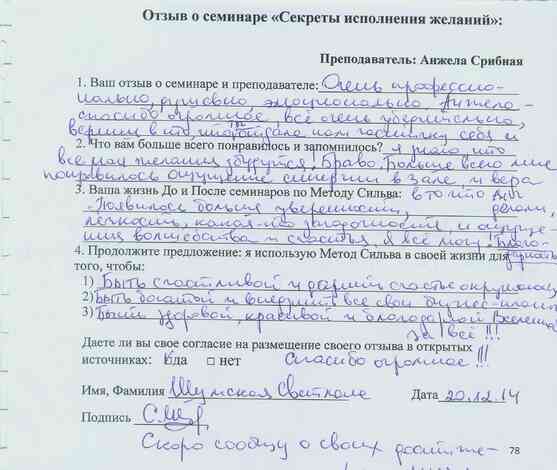 Отзыв о семинаре «Секреты исполнения желаний»:
Преподаватель: Анжела Срибная
1. Ваш отзыв о семинаре и преподавателе: Очень профессио-
нально, душевно, эмоционально, Анжела -
спасибо огромное, всё очень убедительно,
верим в то, что ты дала нам частичку себя и
2. Что вам больше всего понравилось и запомнилось? я знаю, что
все мои желания сбудутся! Браво. Больше всего мне
понравилось ощущение синергии в зале и вера
3. Ваша жизнь До и После семинаров по Методу Сильва: в то что
- Появилось больше уверенности,
легкость, какая-то и ощуще-
ния волшебства и счастья, я всё могу!
4. Продолжите предложение: я использую Метод Сильва в своей жизни для
того, чтобы:
1) Быть счастливой и дарить счастье окружающ.
2) Быть богатой и внедрить все свои бизнес-планы
3) Быть здоровой, красивой и благодарной Вселенной
за всё !!!
Даете ли вы свое согласие на размещение своего отзыва в открытых
источниках: да □ нет Спасибо огромное !!!
Имя, Фамилия Шумская Светлана Дата 20.12.14
Подпись
Скоро сообщу о своих достиже-
78